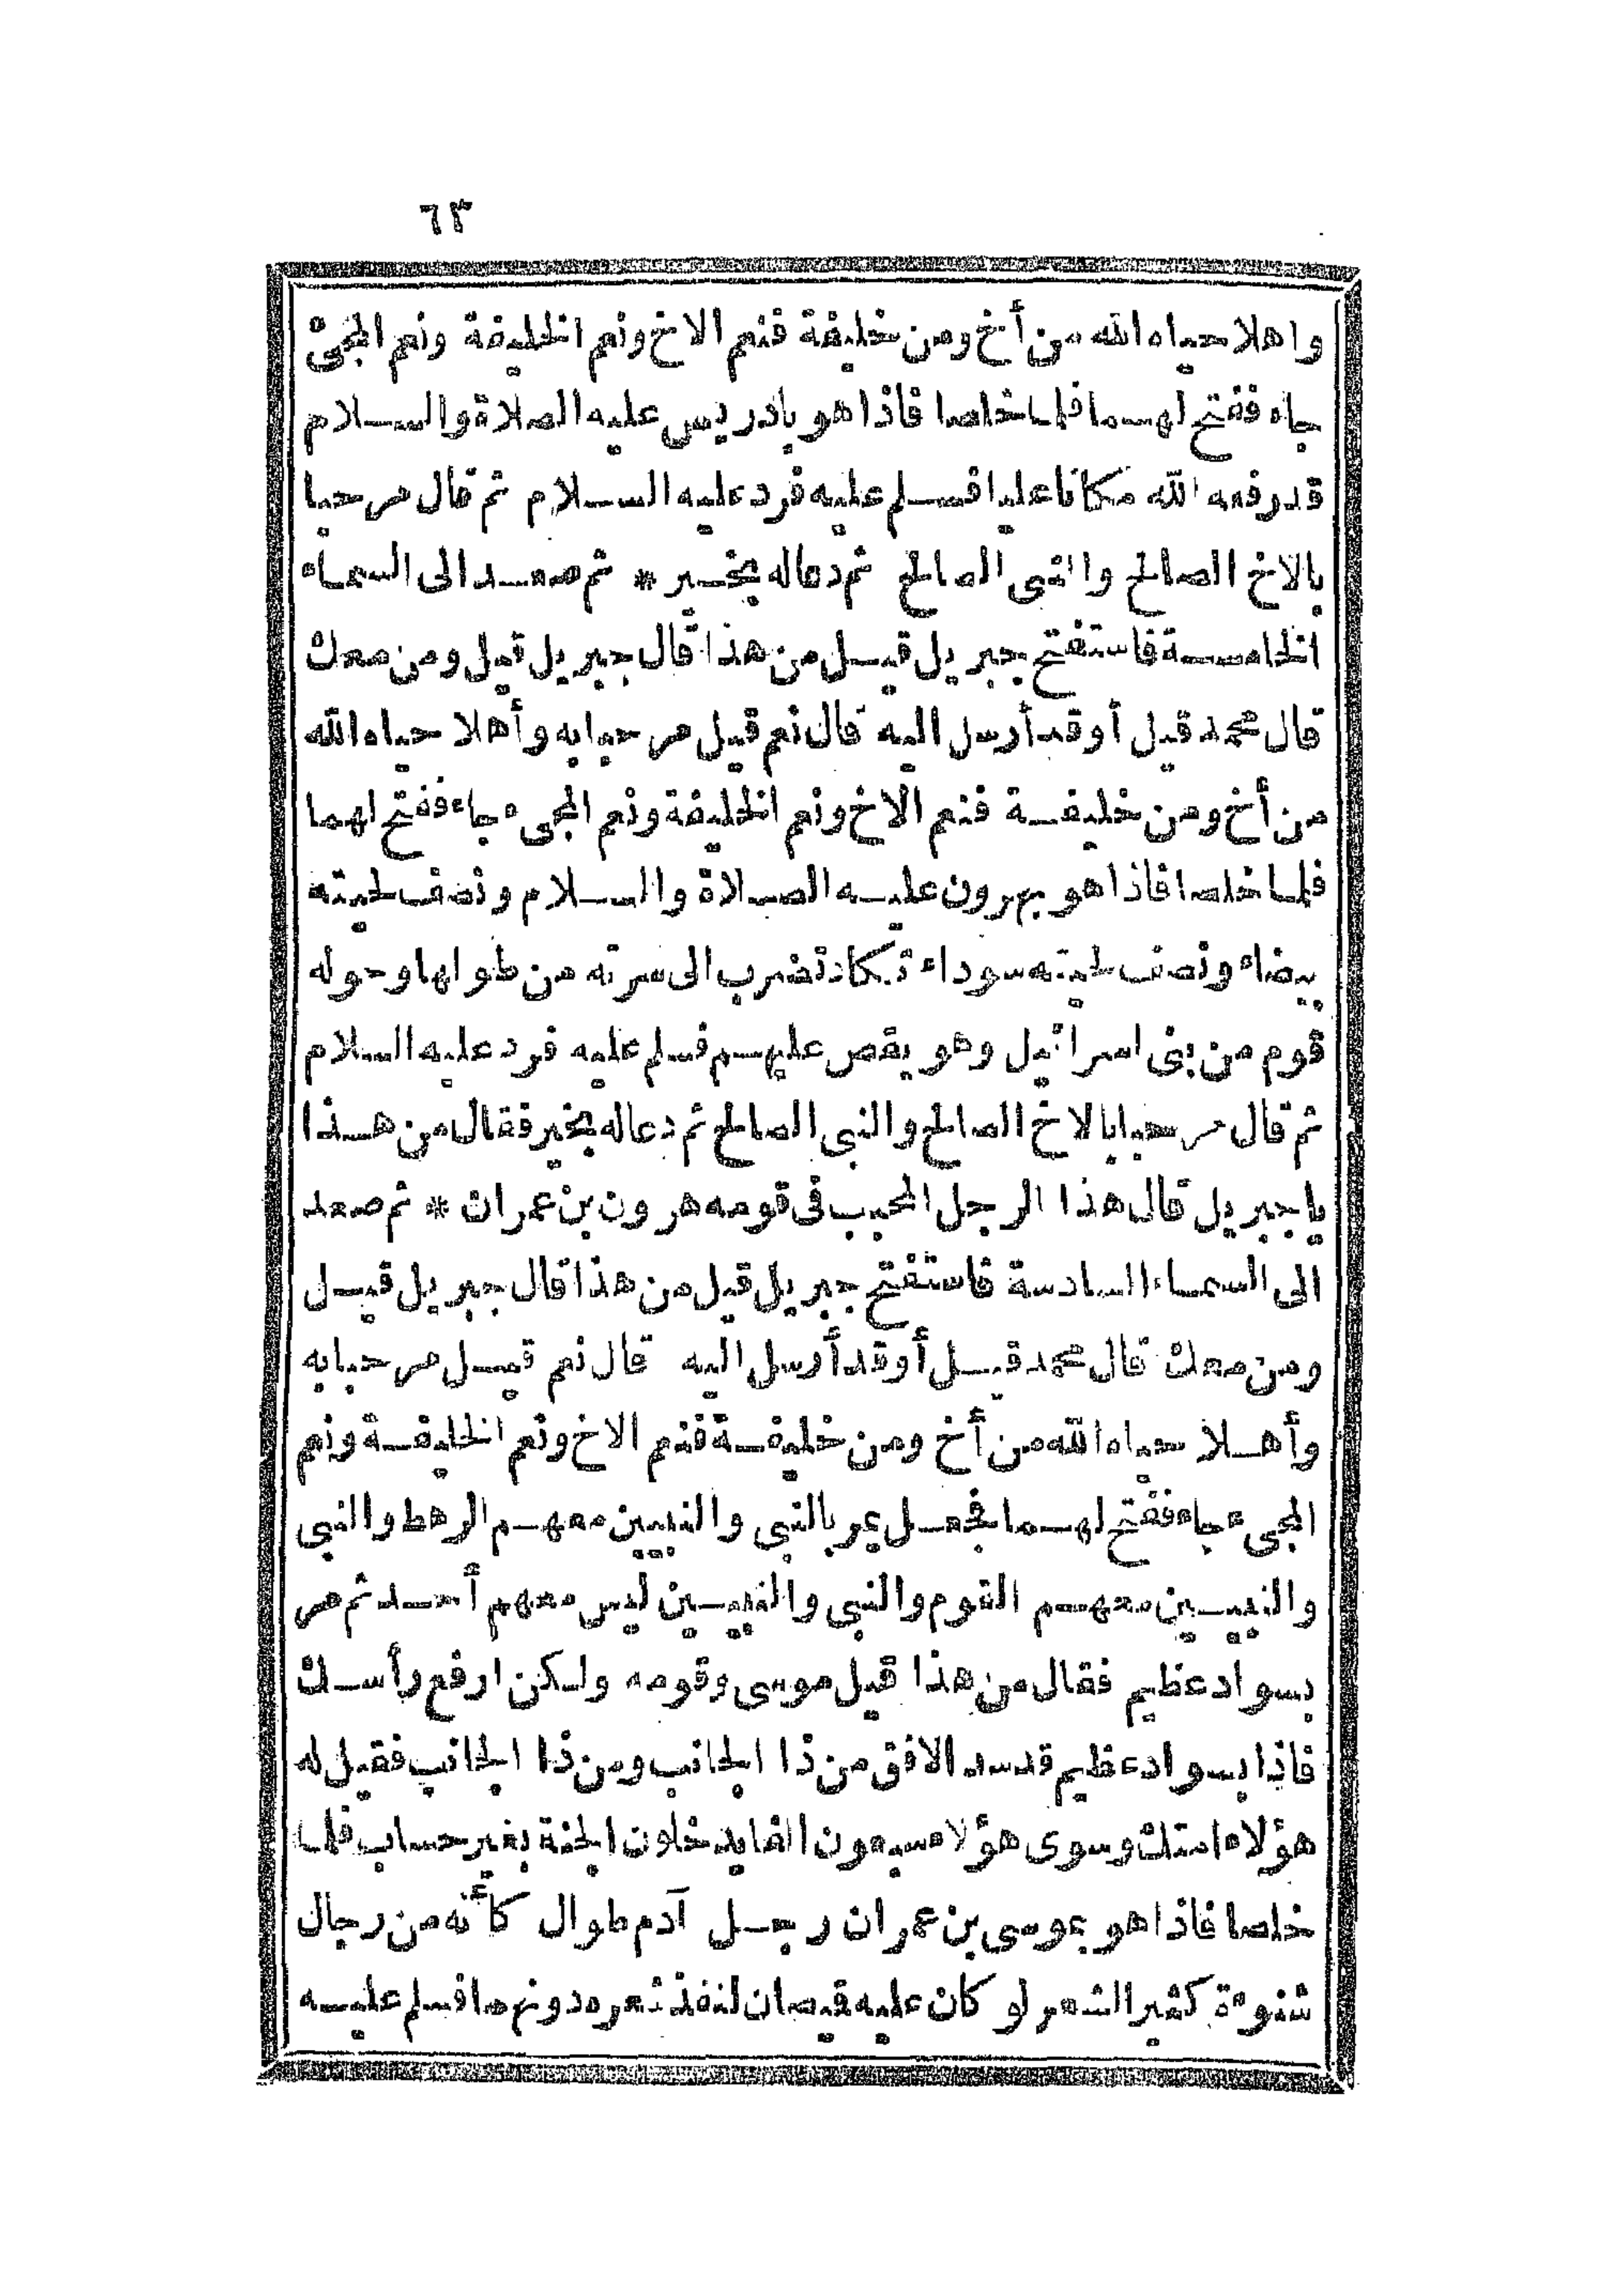 ٦٣
واهلا حياه الله من أخ ومن خليفة فنعم الاخ ونعم الخليفة ونعم المجىء
جاء ففتح لهما فلما خلصا فاذا هو بادريس عليه الصلاة والسلام
قد رفعه الله مكانا عليا فسلم عليه فرد عليه السلام ثم قال مرحبا
بالاخ الصالح والنبى الصالح ثم دعا له بخير * ثم صعد الى السماء
الخامسة فاستفتح جبريل قيل من هذا قال جبريل قيل ومن معك
قال محمد قيل أوقد أرسل اليه قال نعم قيل مرحبا به وأهلا حياه الله
من أخ ومن خليفة فنعم الاخ ونعم الخليفة ونعم المجىء جاء ففتح لهما
فلما خلصا فاذا هو بهرون عليه الصلاة والسلام ونصف لحيته
بيضاء ونصف لحيته سوداء تكاد تضرب الى سرته من طولها وحوله
قوم من بنى اسرائيل وهو يقص عليهم فسلم عليه فرد عليه السلام
ثم قال مرحبا بالاخ الصالح والنبى الصالح ثم دعا له بخير فقال من هذا
يا جبريل قال هذا الرجل المحبب فى قومه هرون بن عمران * ثم صعد
الى السماء السادسة فاستفتح جبريل قيل من هذا قال جبريل قيل
ومن معك قال محمد قيل أوقد أرسل اليه قال نعم قيل مرحبا به
وأهلا حياه الله من أخ ومن خليفة فنعم الاخ ونعم الخليفة ونعم
المجىء جاء ففتح لهما فجعل يمر بالنبى والنبيين معهم الرهط والنبى
والنبيين معهم القوم والنبى والنبيين ليس معهم أحد ثم مر
بسواد عظيم فقال من هذا قيل موسى وقومه ولكن ارفع رأسك
فاذا بسواد عظيم قد سد الافق من ذا الجانب ومن ذا الجانب فقيل له
هؤلاء امتك وسوى هؤلاء سبعون الفا يدخلون الجنة بغير حساب فلما
خلصا فاذا هو بموسى بن عمران رجل آدم طوال كأنه من رجال
شنوءة كثير الشعر لو كان عليه قميصان لنفذ شعره دونهما فسلم عليه